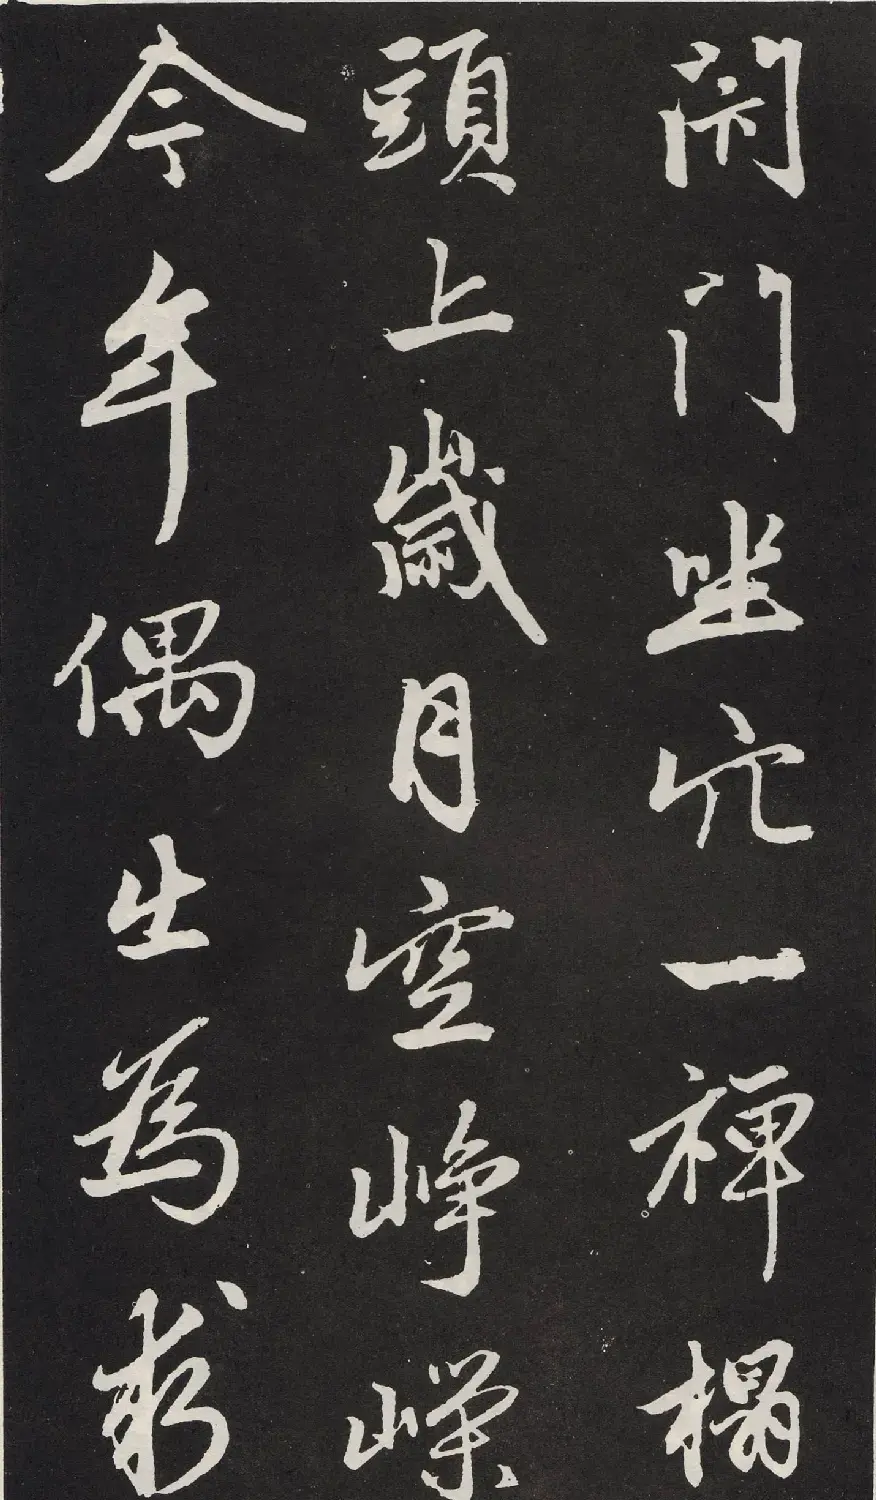 閉門坐穴一禅榻
頭上歲月空崢嶸
今年偶出為求